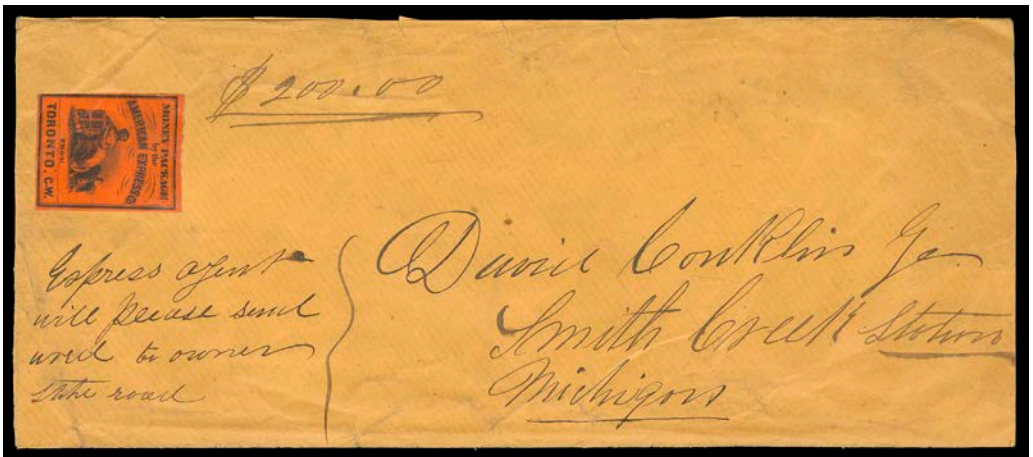 $200.00
MONEY PACKAGE
by the
AMERICAN EXPRESS Co
FROM
TORONTO, C.W.
Express agent
will please send
word to owner
State road
David Conklin
Smith Creek Station
Michigan